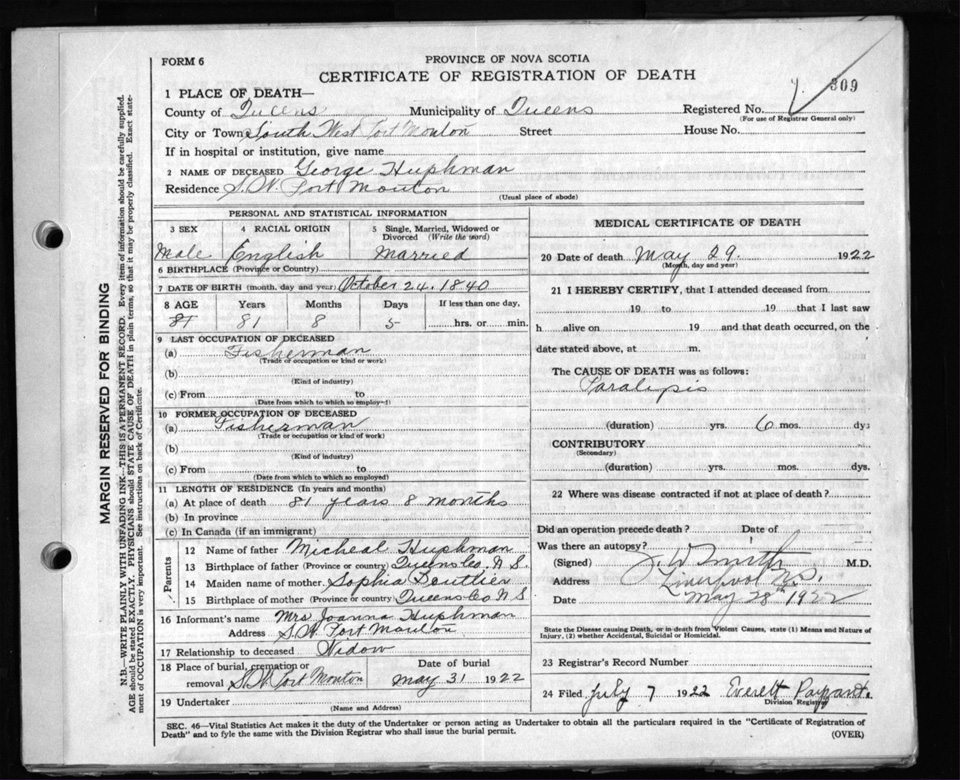 FORM 6
PROVINCE OF NOVA SCOTIA
CERTIFICATE OF REGISTRATION OF DEATH
309
1 PLACE OF DEATH—
County of Queens Municipality of Queens Registered No.
(For use of Registrar General only)
City or Town South West Port Mouton Street House No.
If in hospital or institution, give name
2 NAME OF DECEASED George Huphman
Residence S.W. Port Mouton
(Usual place of abode)
PERSONAL AND STATISTICAL INFORMATION
3 SEX 4 RACIAL ORIGIN 5 Single, Married, Widowed or Divorced (Write the word)
Male English Married
6 BIRTHPLACE (Province or Country)
7 DATE OF BIRTH (month, day and year) October 24. 1840
8 AGE Years Months Days If less than one day,
81 81 8 5 hrs. or min.
9 LAST OCCUPATION OF DECEASED
(a) Fisherman
(Trade or occupation or kind or work)
(b)
(Kind of industry)
(c) From to
(Date from which to which so employed)
10 FORMER OCCUPATION OF DECEASED
(a) Fisherman
(Trade or occupation or kind of work)
(b)
(Kind of industry)
(c) From to
(Date from which to which so employed)
11 LENGTH OF RESIDENCE (In years and months)
(a) At place of death 81 years 8 months
(b) In province
(c) In Canada (if an immigrant)
Parents
12 Name of father Micheal Huphman
13 Birthplace of father (Province or country) Queens Co. N.S.
14 Maiden name of mother Sophia Doutlier
15 Birthplace of mother (Province or country) Queens Co N S
16 Informant's name Mrs Joanna Huphman
Address S.W. Port Mouton
17 Relationship to deceased Widow
18 Place of burial, cremation or removal S.W Port Mouton Date of burial May 31 1922
19 Undertaker
(Name and Address)
MEDICAL CERTIFICATE OF DEATH
20 Date of death May 29. 1922
(Month, day and year)
21 I HEREBY CERTIFY, that I attended deceased from
19 to 19 that I last saw
h alive on 19 and that death occurred, on the
date stated above, at m.
The CAUSE OF DEATH was as follows:
Paralysis
(duration) yrs. 6 mos. dys
CONTRIBUTORY
(Secondary)
(duration) yrs. mos. dys.
22 Where was disease contracted if not at place of death?
Did an operation precede death? Date of
Was there an autopsy?
(Signed) J. W Smith M.D.
Address Liverpool N.S.
Date May 28th 1922
State the Disease causing Death, or in death from Violent Causes, state (1) Means and Nature of
Injury, (2) whether Accidental, Suicidal or Homicidal.
23 Registrar's Record Number
24 Filed July 7 1922 Everett Payzant.
Division Registrar
SEC. 46—Vital Statistics Act makes it the duty of the Undertaker or person acting as Undertaker to obtain all the particulars required in the "Certificate of Registration of
Death" and to fyle the same with the Division Registrar who shall issue the burial permit.
(OVER)
MARGIN RESERVED FOR BINDING
N.B.—WRITE PLAINLY WITH UNFADING INK—THIS IS A PERMANENT RECORD. Every item of information should be carefully supplied.
AGE should be stated EXACTLY. PHYSICIANS should STATE CAUSE OF DEATH in plain terms, so that it may be properly classified. Exact state-
ment of OCCUPATION is very important. See instructions on back of Certificate.